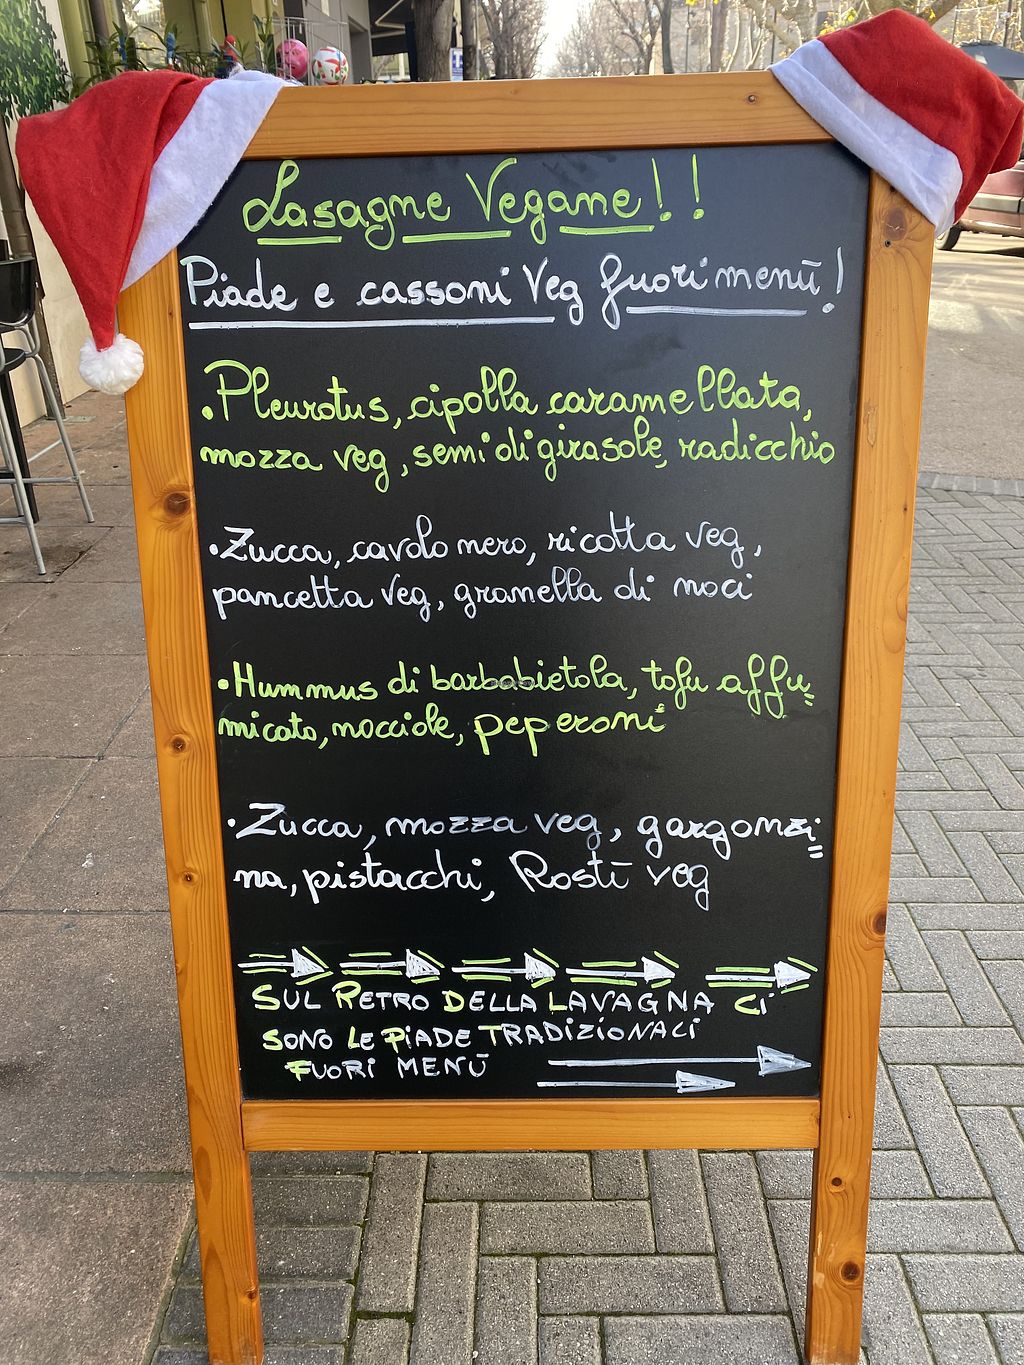 Lasagne Vegane!!
Piade e cassoni Veg fuori menū!
•Pleurotus, cipolla caramellata,
mozza veg, semi di girasole, radicchio
•Zucca, cavolo nero, ricotta veg,
pancetta veg, granella di noci
•Hummus di barbabietola, tofu affu=
micato, nocciole, peperoni
•Zucca, mozza veg, gargonzi=
na, pistacchi, Rostī veg
SUL RETRO DELLA LAVAGNA CI
SONO LE PIADE TRADIZIONALI
FUORI MENŪ